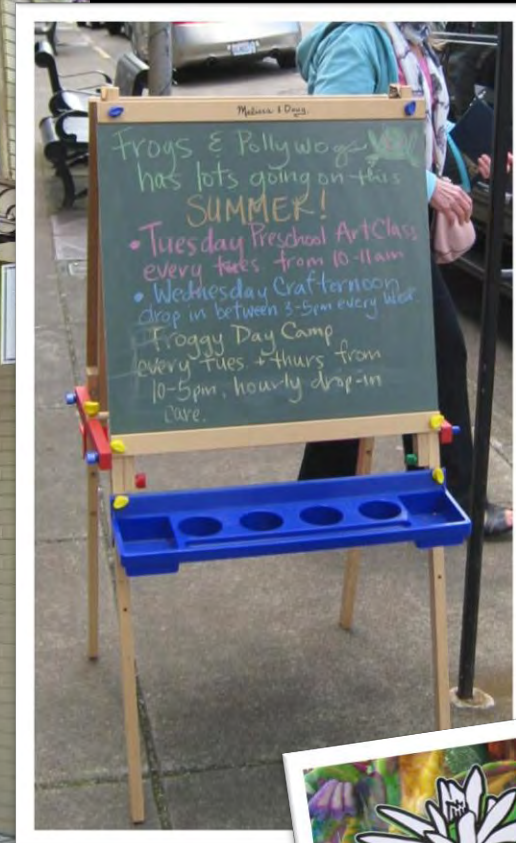 Melissa & Doug
Frogs & Pollywogs
has lots going on this
SUMMER!
• Tuesday Preschool Art Class
every tues from 10-11am
• Wednesday Crafternoon
drop in between 3-5pm every Wed.
Froggy Day Camp
every tues + thurs from
10-5pm, hourly drop-in
care.